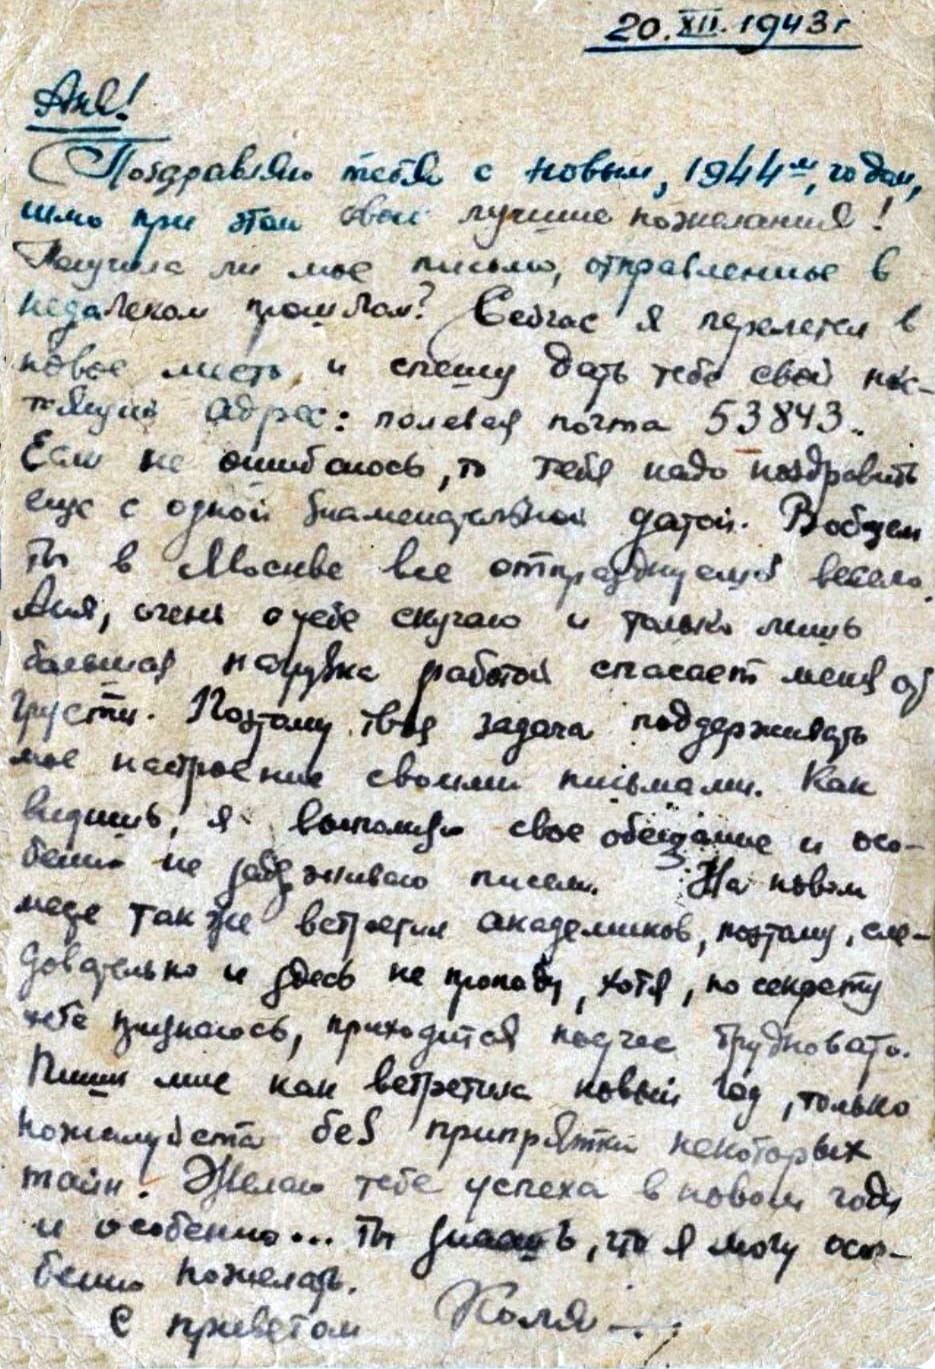 20.XII.1943 г
Аня!
Поздравляю тебя с новым, 1944м, годом,
шлю при этом свои лучшие пожелания!
Получила ли мое письмо, отправленное в
недалеком прошлом? Сейчас я перелетел в
новое место и спешу дать тебе свой нас-
тоящий адрес: полевая почта 53843.
Если не ошибаюсь, то тебя надо поздравить
еще с одной знаменательной датой. Вобщем
ты в Москве все отпразднуешь весело.
Аня, очень о тебе скучаю и только лишь
большая нагрузка работой спасает меня от
грусти. Поэтому твоя задача поддерживать
мое настроение своими письмами. Как
видишь, я выполняю свое обещание и осо-
бенно не задерживаю писем. На новом
месте также встретил академиков, поэтому, сле-
довательно и здесь не пропаду, хотя, по секрету
тебе признаюсь, приходится подчас трудновато.
Пиши мне как встретила новый год, только
пожалуйста без припрятки некоторых
тайн. Желаю тебе успеха в новом году
и особенно... ты знаешь, что я могу осо-
бенно пожелать.
С приветом Коля